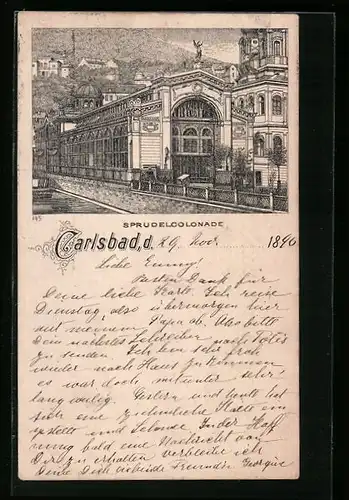 SPRUDELCOLONADE
Carlsbad, d. 29. Nov. 1890
Liebe Emmy!
Besten Dank für
Deine liebe Karte. Ich reise
Dienstag, also übermorgen hier
mit meinem Papa ab. Also bitte
Dein nächstes Schreiben nach
zu senden. Ich bin sehr froh
wieder nach Haus zu kommen
es war doch mitunter sehr
langweilig. Gestern und heute hat
sich eine ziemliche Kälte ein
gestellt und In der Hoff
nung bald eine Nachricht von
Dir zu erhalten verbleibe ich
Deine Dich liebende Freundin Georgine